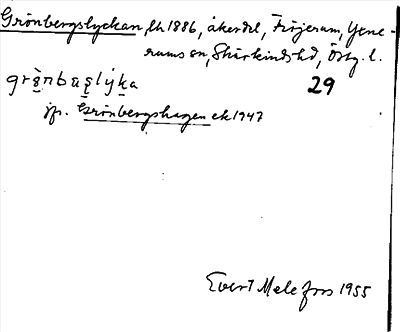 Grönbergslyckan, lh 1886, åkerdel, Fröjerum, Yxne-
rums sn, Skärkinds hd, Östg. l.
29
jfr. Grönbergshagen ek 1947
Evert Melefors 1955